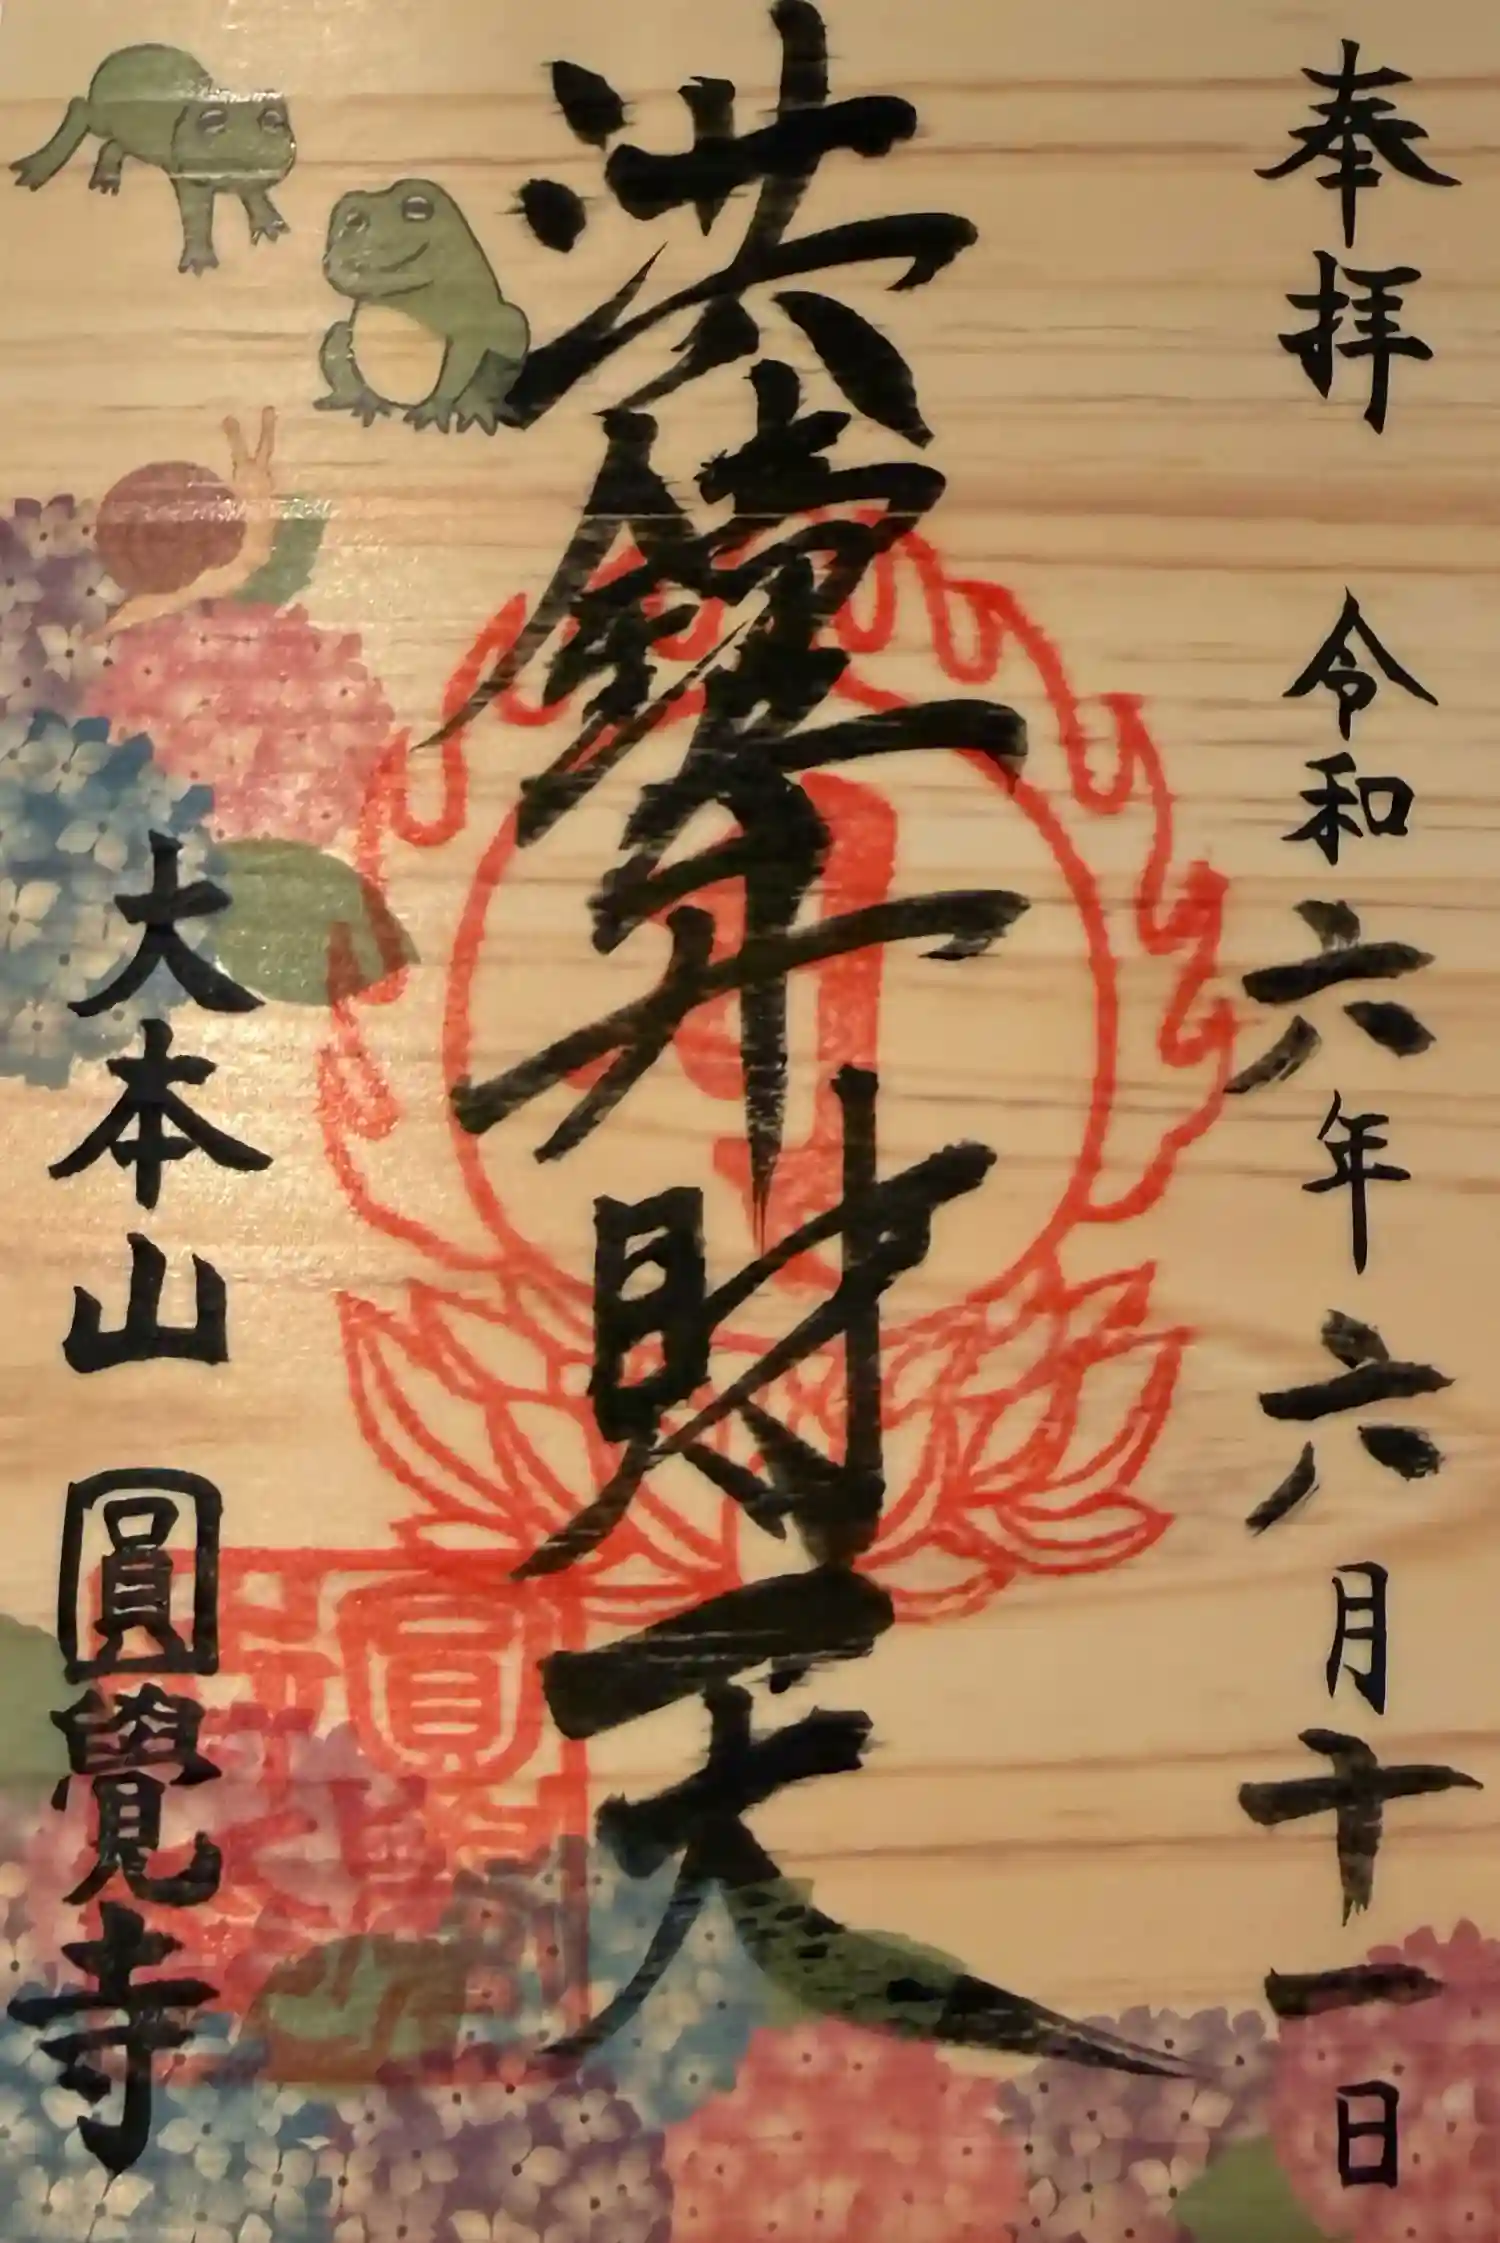 奉拝 令和六年六月十一日
洪鐘弁財天
大本山 圓覺寺